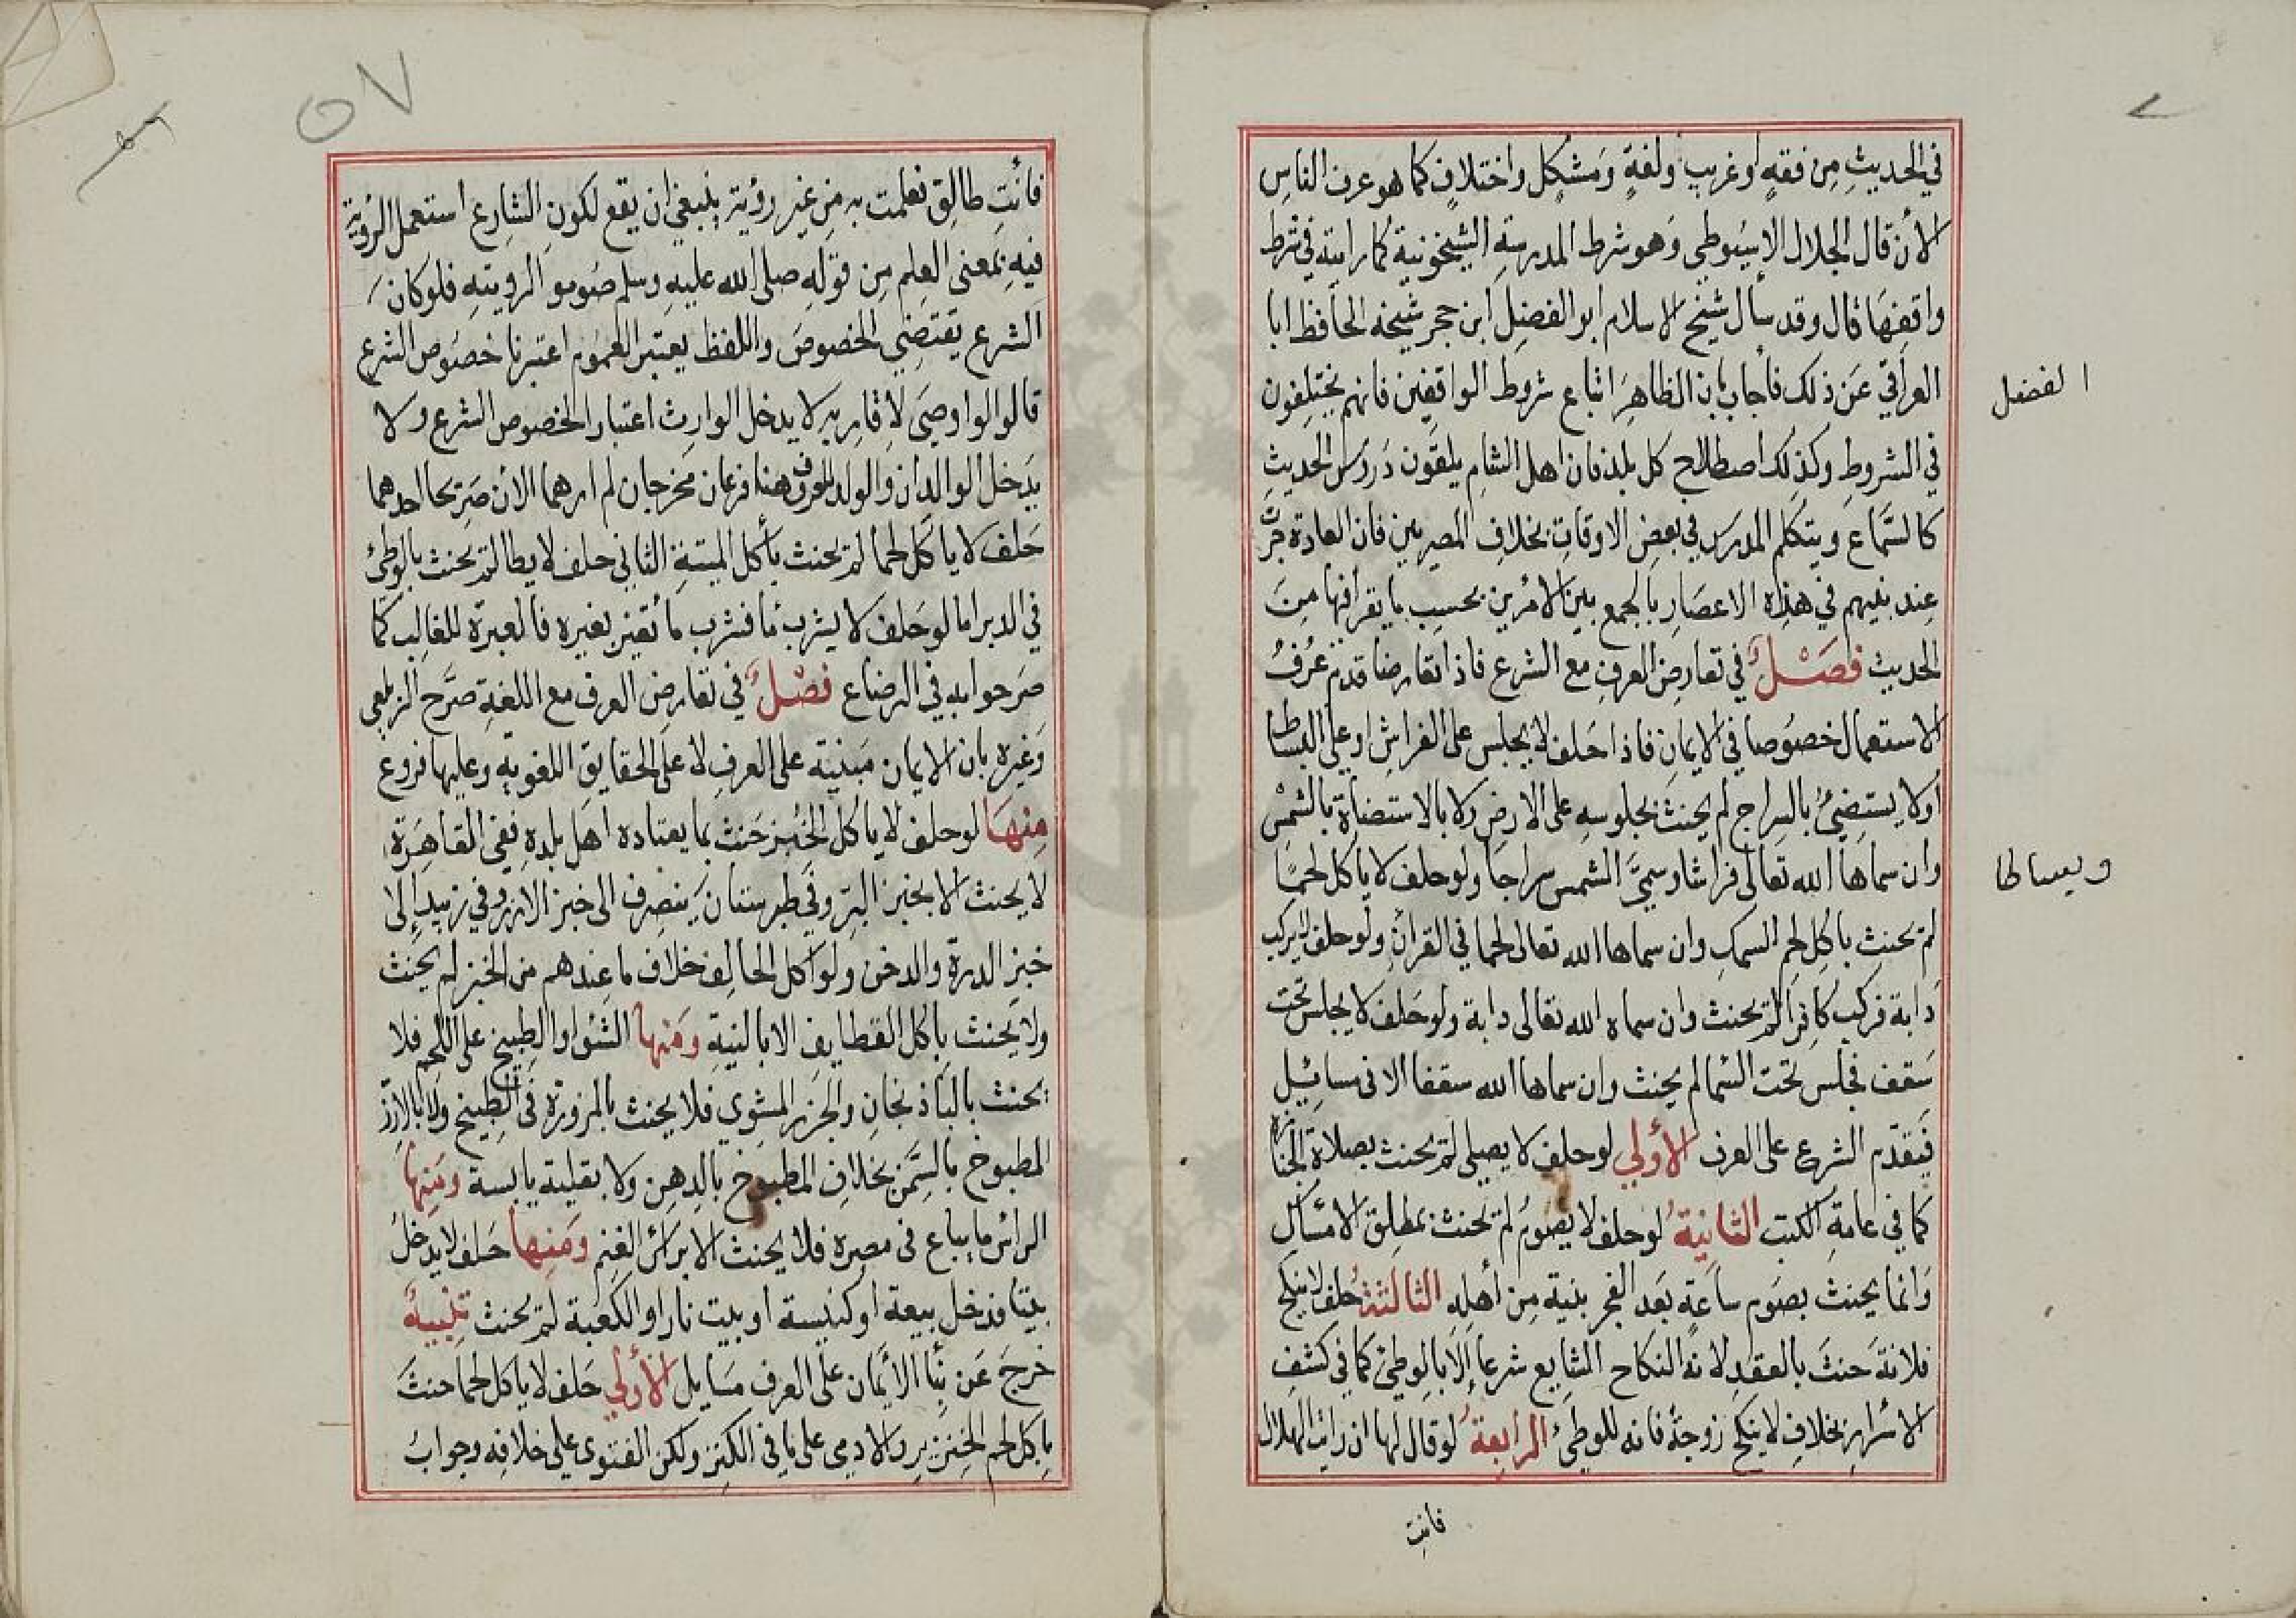 في الحديث من فقه او غريب ولغة ومشكل واختلاف كما هو عرف الناس
الأن قال الجلال الاسيوطي وهو شرط المدرسة الشيخونية كما رايته في شرط
واقفها قال وقد سأل شيخ الاسلام ابو الفضل ابن حجر شيخه الحافظ ابا
الفضل
العراقي عن ذلك فأجاب بان الظاهر اتباع شروط الواقفين فانهم يختلفون
في الشروط وكذلك اصطلاح كل بلد فان اهل الشام يلقون دروس الحديث
كالسماع ويتكلم المدرس في بعض الاوقات بخلاف المصريين فان العادة جرت
عند بنيهم في هذه الاعصار بالجمع بين الامرين بحسب ما يقرا فيها من
الحديث فصل في تعارض العرف مع الشرع فاذا تعارضا قدم عرف
الاستعمال خصوصا في الايمان فاذا حلف لا يجلس على الفراش او على البساط
اولا يستضئ بالسراج لم يحنث بجلوسه على الارض ولا بالاستضأة بالشمس
وان سماها الله تعالى فراشا وسمى الشمس سراجا ولو حلف لا يأكل لحما
وبساطا
لم يحنث باكل لحم السمك وان سماها الله تعالى لحما في القرأن ولو حلف لا يركب
دابة فركب كافرا لم يحنث وان سماه الله تعالى دابة ولو حلف لا يجلس تحت
سقف فجلس تحت السما لم يحنث وان سماها الله سقفا الا في مسائيل
فيقدم الشرع على العرف الأولي لو حلف لا يصلي لم يحنث بصلاة الجنازة
كما في عامة الكتب الثانية لو حلف لا يصوم لم يحنث بمطلق الامساك
وانما يحنث بصوم ساعة بعد الفجر بنية من أهله الثالثة حلف لا ينكح
فلانة حنث بالعقد لانه النكاح الشايع شرعا الا بالوطئ كما في كشف
الاسرار بخلاف لا ينكح زوجة فانه للوطئ الرابعة لو قال لها ان رايت الهلال
فأنت
٥٧
فأنت طالق فعلمت به من غير رؤية ينبغي ان يقع لكون الشارع استعمل الرؤية
فيه بمعنى العلم من قوله صلى الله عليه وسلم صوموا لرويته فلو كان
الشرع يقتضي الخصوص واللفظ يعتبر العموم اعتبرنا خصوص الشرع
قالوا لو اوصى لاقاربه لا يدخل الوارث اعتبارا لخصوص الشرع ولا
يدخل الوالدان والولد للعرف وهنا فرعان مخرجان لم ارهما الان صريحا احدهما
حلف لا ياكل لحما لم يحنث بأكل الميتة الثاني حلف لا يطا لم يحنث بالوطئ
في الدبر اما لو حلف لا يشرب ما فشرب ما تغير بغيره فالعبرة للغالب كما
صرحوا به في الرضاع فصل في تعارض العرف مع اللغة صرح الزيلعي
وغيره بان الايمان مبنية على العرف لا على الحقايق اللغوية وعليها فروع
منها لو حلف لا ياكل الخبز حنث بما يعتاده اهل بلده ففي القاهرة
لا يحنث الا بخبز البر وفي طبرستان ينصرف الى خبز الارز وفي زبيد إلى
خبز الدرة والدخن ولو اكل الحالف خلاف ما عندهم من الخبز لم يحنث
ولا يحنث بأكل القطايف الا بالنية ومنها الشوا والطبيخ على اللحم فلا
يحنث بالباذنجان والجزر المشوي فلا يحنث بالمزورة في الطبيخ ولا بالارز
المطبوخ بالسمن بخلاف المطبوخ بالدهن ولا بقلية يابسة ومنها
الراس ما يباع في مصره فلا يحنث الا براس الغنم ومنها حلف لا يدخل
بيتا فدخل بيعة او كنيسة او بيت نار او الكعبة لم يحنث تنبيه
خرج عن بنأ الأيمان على العرف مسايل الأولي حلف لا ياكل لحما حنث
باكل لحم الخنزير والادمى على ما في الكنز ولكن الفتوى على خلافه وجواب